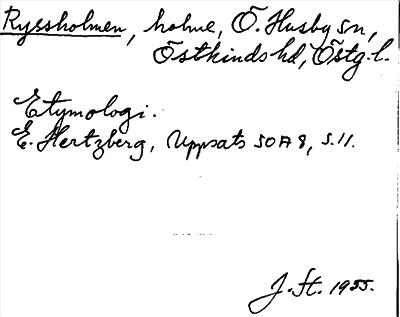 Ryssholmen, holme, Ö. Husby sn,
Östkinds hd, Östg. l.
Etymologi.
E. Hertzberg, Uppsats SOA 8, s. 11.
J. St. 1955.